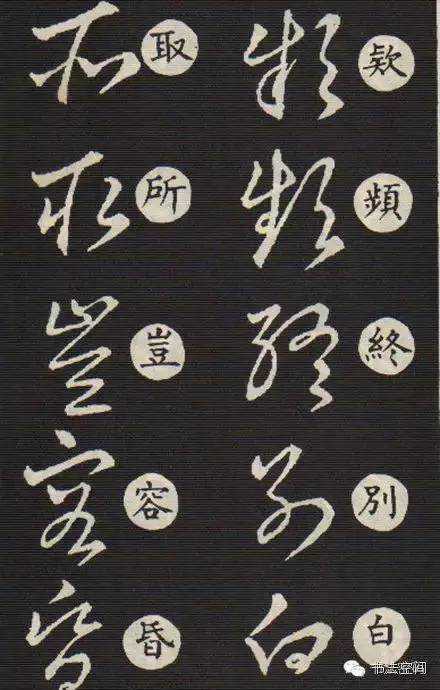 欵頻終別白
取所豈容昏
书法